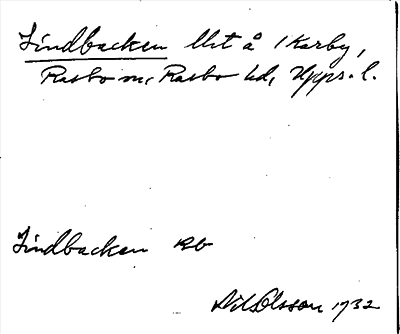 Lindbacken llht å 1 Karby,
Rasbo sn, Rasbo hd, Upps. l.
Lindbacken Rb
Nils Olsson 1932